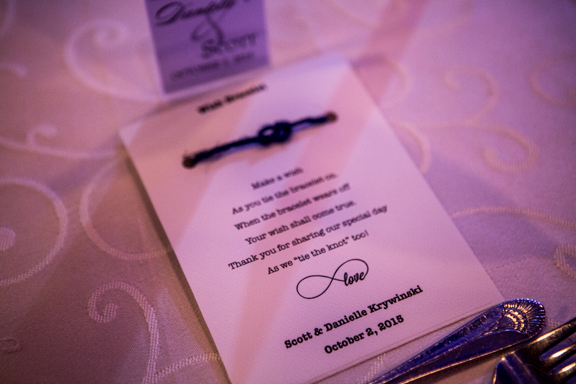 Danielle
&
Scott
Wish Bracelet
Make a wish
As you tie the bracelet on.
When the bracelet wears off
Your wish shall come true.
Thank you for sharing our special day
As we "tie the knot" too!
love
Scott & Danielle Krywinski
October 2, 2015